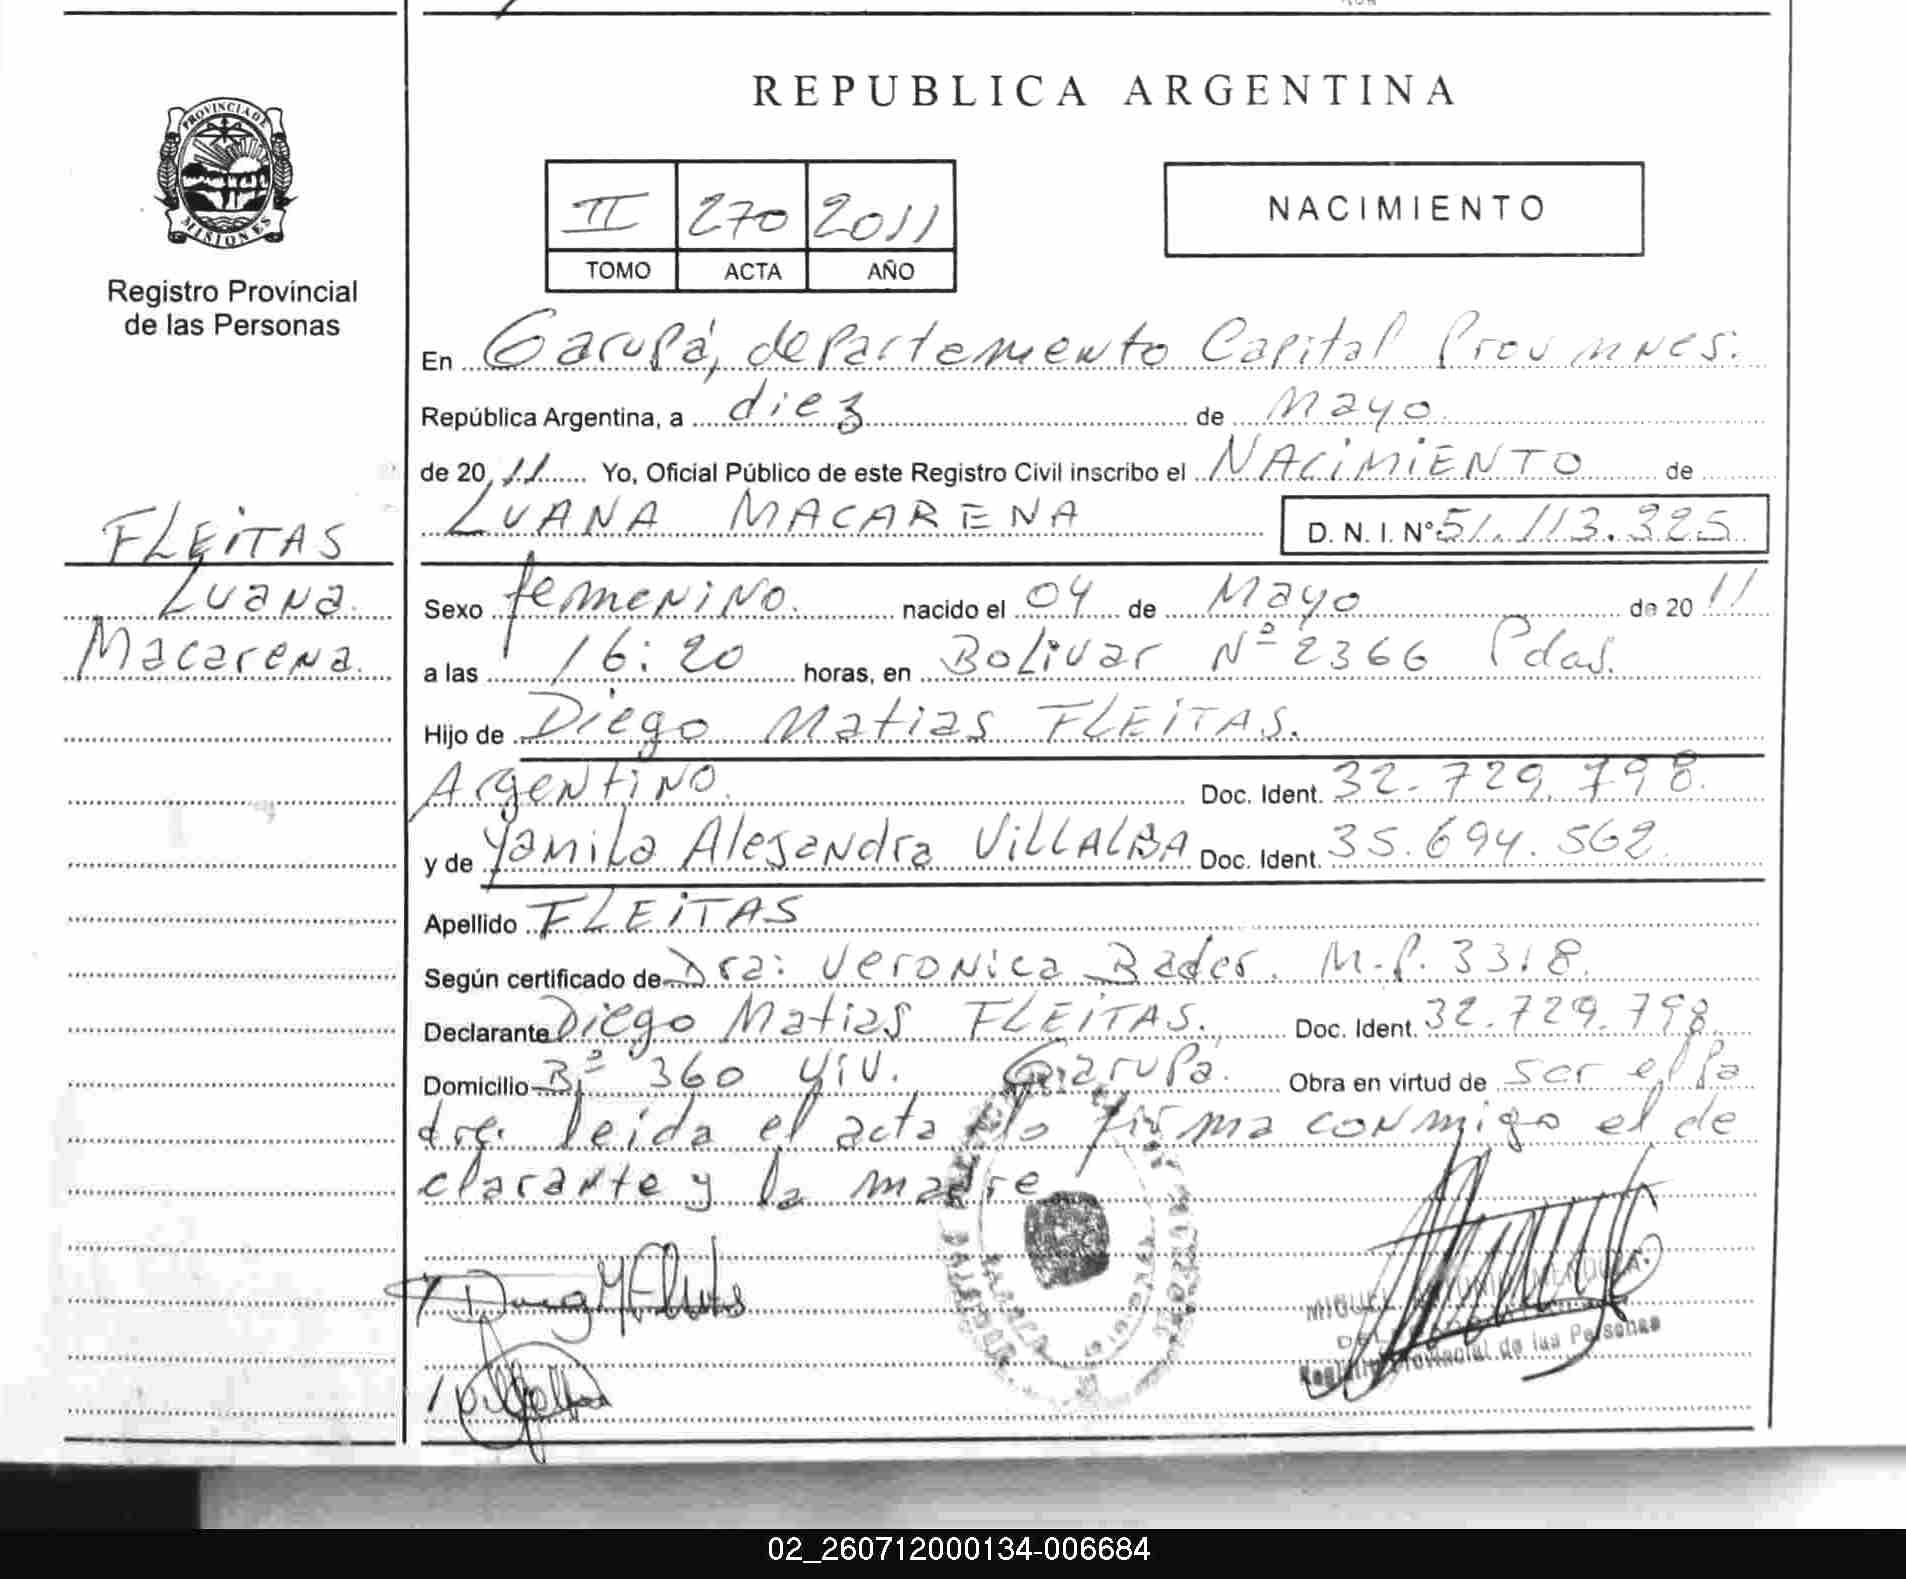 REPUBLICA ARGENTINA
PROVINCIA DE MISIONES
Registro Provincial
de las Personas
II 270 2011
TOMO ACTA AÑO
NACIMIENTO
En Garupá, departamento Capital Prov mnes.
República Argentina, a diez de Mayo
de 2011 Yo, Oficial Público de este Registro Civil inscribo el NACIMIENTO de
LUANA MACARENA D. N. I. Nº 51.113.325
FLEITAS
Luana
Macarena
Sexo femenino. nacido el 04 de Mayo de 2011
a las 16:20 horas, en Bolivar Nº 2366 Pdas.
Hijo de Diego Matias FLEITAS.
Argentino. Doc. Ident. 32.729.798.
y de Yamila Alejandra VILLALBA Doc. Ident. 35.694.562
Apellido FLEITAS
Según certificado de Dra: Veronica Bader. M.P. 3318.
Declarante Diego Matias FLEITAS. Doc. Ident. 32.729.798
Domicilio Bº 360 Viv. Garupá. Obra en virtud de ser el pa
dre. leida el acta lo firma conmigo el de
clarante y la madre
MIGUEL
Registro Provincial de las Personas
02_260712000134-006684